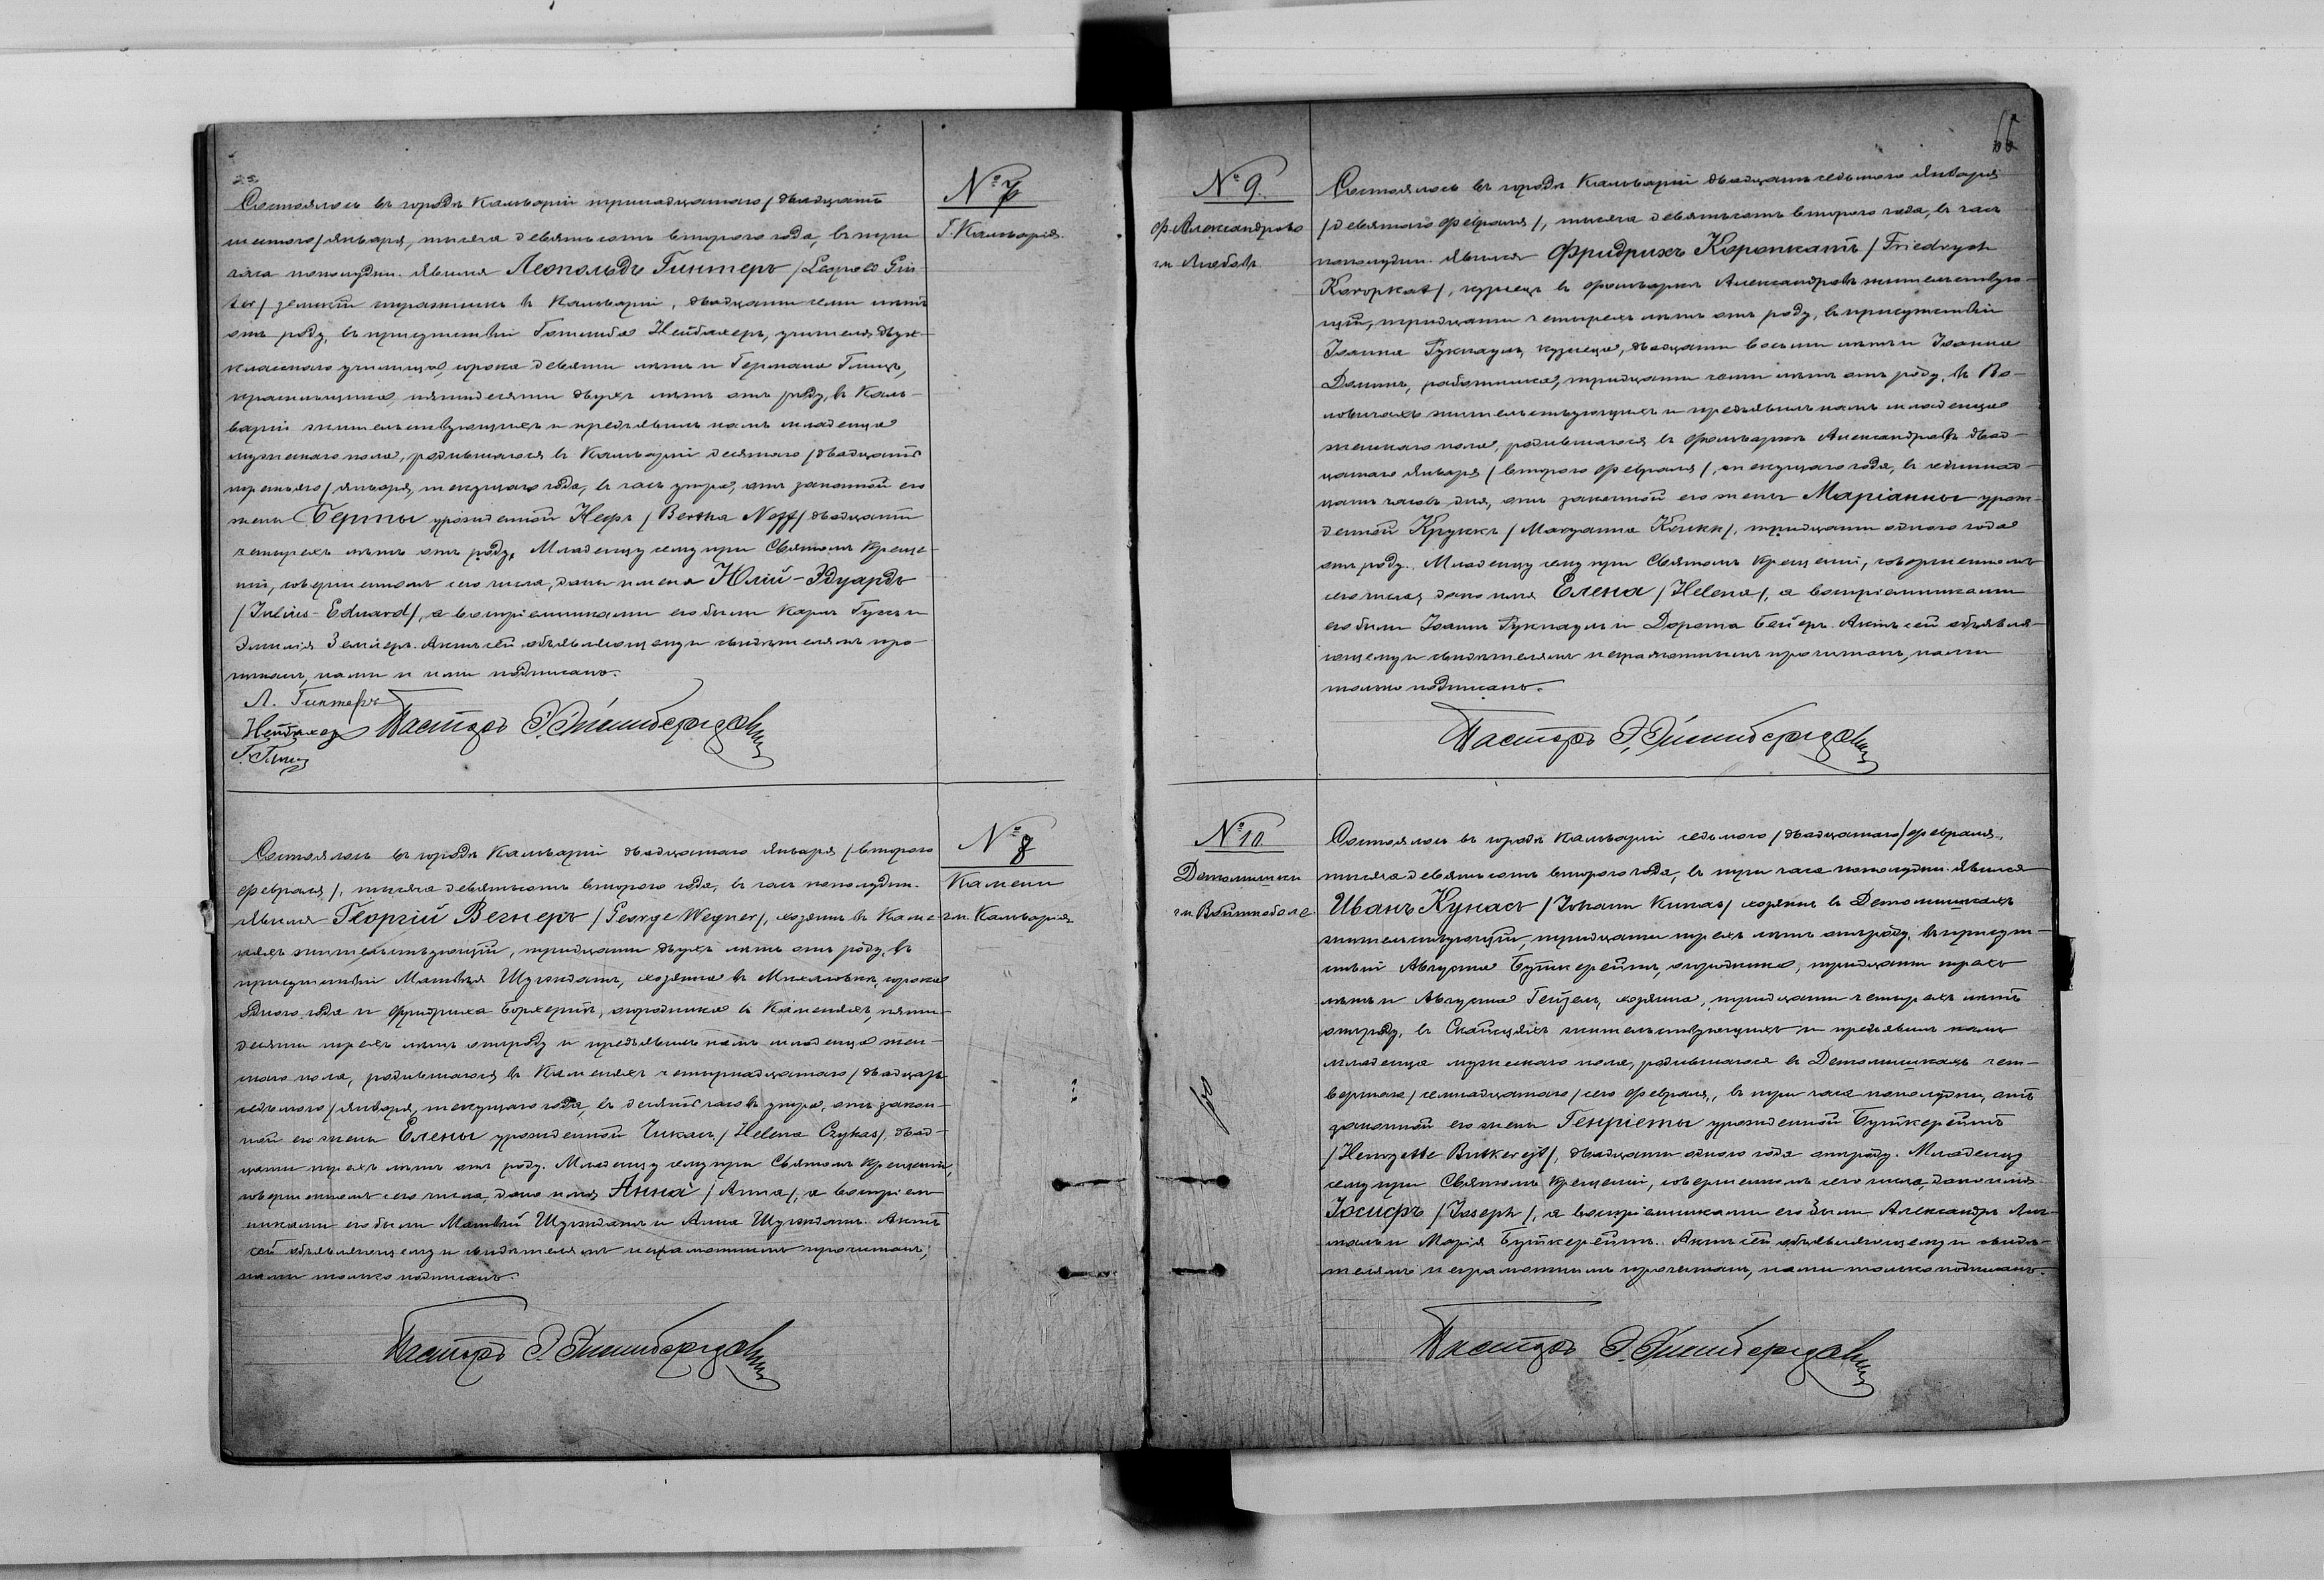 № 7
Г. Кальварія.
Состоялось въ городѣ Кальваріи тринадцатаго /двадцать
шестого/ января, тысяча девятьсотъ второго года, въ три
часа пополудни. Явился Леопольдъ Гинтеръ /Leopold Gin-
ter/ земскій стражникъ въ Кальваріи, двадцати семи лѣтъ
отъ роду, въ присутствіи Готлиба Нейбахеръ, учителя двух-
класснаго училища, сорока девяти лѣтъ и Германа Глицъ,
красильщика, пятидесяти двухъ лѣтъ отъ роду, въ Каль-
варіи жительствующихъ и предъявилъ намъ младенца
мужескаго пола, родившагося въ Кальваріи десятаго /двадцать
третьяго/ января, текущаго года, въ часъ утра, отъ законной его
жены Берты урожденной Нефъ /Bertha Neff/ двадцати
четырехъ лѣтъ отъ роду. Младенцу сему при Святомъ Креще-
ніи, совершенномъ сего числа, даны имена Юлій-Эдуардъ
/Julius-Eduard/, а воспріемниками его были Карлъ Гуссъ и
Эмилія Земіеръ. Актъ сей объявляющему и свидѣтелямъ про-
читанъ, нами и ими подписанъ.
Л. Гинтеръ
Нейбахеръ Пасторъ
Г. Глицъ
№ 8
Камени
гм. Кальварія
Состоялось въ городѣ Кальваріи двадцатаго января /второго
февраля/, тысяча девятьсотъ второго года, въ часъ пополудни.
Явился Георгій Вегнеръ /George Wegner/, хозяинъ въ Каме-
няхъ жительствующій, тридцати двухъ лѣтъ отъ роду, въ
присутствіи Матвѣя Шугждатъ, хозяина въ Михаловкѣ, сорока
одного года и Фридриха Борхертъ, огородника въ Каменяхъ, пяти-
десяти трехъ лѣтъ отъ роду и предъявилъ намъ младенца жен-
скаго пола, родившагося въ Каменяхъ четырнадцатаго /двадцать
седьмого/ января, текущаго года, въ десять часовъ утра, отъ закон-
ной его жены Елены урожденной Чикасъ /Helena Czykas/, двад-
цати трехъ лѣтъ отъ роду. Младенцу сему при Святомъ Крещеніи,
совершенномъ сего числа, дано имя Анна /Anna/, а воспріем-
никами его были Матвѣй Шугждатъ и Анна Шугждатъ. Актъ
сей объявляющему и свидѣтелямъ неграмотнымъ прочитанъ,
нами только подписанъ.
Пасторъ
66
№ 9.
ф. Александрово
гм. Любовъ
Состоялось въ городѣ Кальваріи двадцать седьмого января
/девятаго февраля/, тысяча девятьсотъ второго года, въ часъ
пополудни. Явился Фридрихъ Коропкатъ /Friedrych
Koropkat/, кузнецъ въ фольваркѣ Александровѣ жительствую-
щій, тридцати четырехъ лѣтъ отъ роду, въ присутствіи
Іоанна Рукпауль, кузнеца, двадцати восьми лѣтъ и Іоанна
работника, тридцати семи лѣтъ отъ роду, въ Во-
ловичахъ жительствующихъ и предъявилъ намъ младенца
женскаго пола, родившагося въ фольваркѣ Александровѣ двад-
цатаго января /второго февраля/, текущаго года, въ одиннад-
цать часовъ дня, отъ законной его жены Маріанны урож-
денной Круккъ /Maryanna Krukk/, тридцати одного года
отъ роду. Младенцу сему при Святомъ Крещеніи, совершенномъ
сего числа, дано имя Елена /Helena/, а воспріемниками
его были Іоаннъ Рукпауль и Дорота Бейеръ. Актъ сей объявля-
ющему и свидѣтелямъ неграмотнымъ прочитанъ, нами
только подписанъ.
Пасторъ
№ 10.
Детомишки
гм. Войткоболе
Состоялось въ городѣ Кальваріи седьмого /двадцатаго/ февраля,
тысяча девятьсотъ второго года, въ три часа пополудни. Явился
Иванъ Кунасъ /Johann Kunas/ хозяинъ въ Детомишкахъ
жительствующій, тридцати трехъ лѣтъ отъ роду, въ присут-
ствіи Августа Буткерейтъ, огородника, тридцати трехъ
лѣтъ и Августа Гейзель, хозяина, тридцати четырехъ лѣтъ
отъ роду, въ жительствующихъ и предъявилъ намъ
младенца мужескаго пола, родившагося въ Детомишкахъ чет-
вертаго /семнадцатаго/ сего февраля, въ три часа пополудни, отъ
законной его жены Генріеты урожденной Буткерейтъ
/Henryette Butkerejt/, двадцати одного года отъ роду. Младенцу
сему при Святомъ Крещеніи, совершенномъ сего числа, дано имя
Іосифъ /Joseph/, а воспріемниками его были Александръ
и Марія Буткерейтъ. Актъ сей объявляющему и свидѣ-
телямъ неграмотнымъ прочитанъ, нами только подписанъ.
Пасторъ